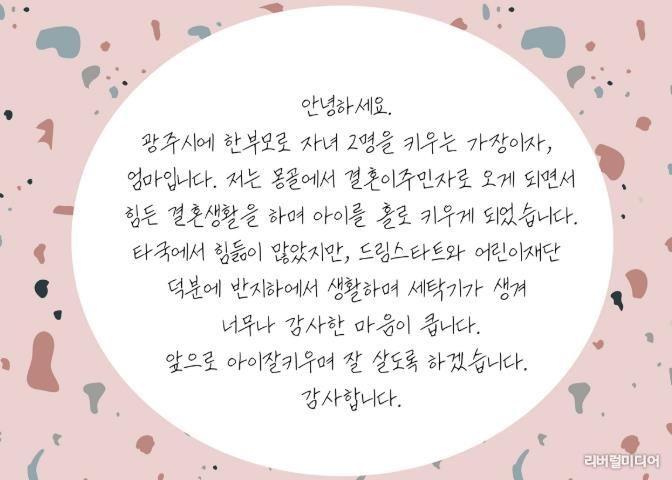 안녕하세요.
광주시에 한부모로 자녀 2명을 키우는 가장이자,
엄마입니다. 저는 몽골에서 결혼이주민자로 오게 되면서
힘든 결혼생활을 하며 아이를 홀로 키우게 되었습니다.
타국에서 힘듦이 많았지만, 드림스타트와 어린이재단
덕분에 반지하에서 생활하며 세탁기가 생겨
너무나 감사한 마음이 큽니다.
앞으로 아이잘키우며 잘 살도록 하겠습니다.
감사합니다.
리버럴미디어